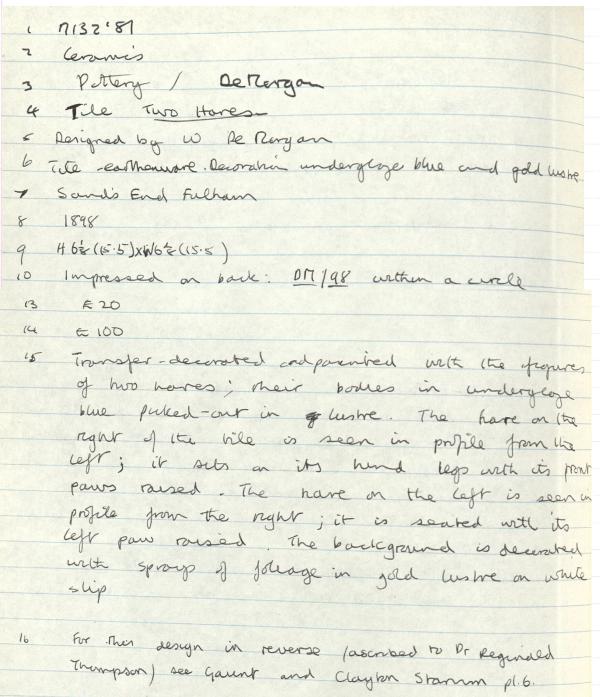 1 M132'87
2 Ceramics
3 Pottery / De Morgan
4 Tile Two Hares
5 Designed by W De Morgan
6 Tile - earthenware. Decoration underglaze blue and gold lustre
7 Sand's End Fulham
8 1898
9 H 6½ (15.5) x W 6½ (15.5)
10 Impressed on back: DM/98 within a circle
13 £20
14 £100
15 Transfer-decorated and painted with the figures
of two hares; their bodies in underglaze
blue picked-out in lustre. The hare on the
right of the tile is seen in profile from the
left; it sits on its hind legs with its front
paws raised. The hare on the left is seen in
profile from the right; it is seated with its
left paw raised. The background is decorated
with sprays of foleage in gold lustre on white
slip
16 For this design in reverse (ascribed to Dr Reginald
Thompson) see Gaunt and Clayton Stamm pl. 6.